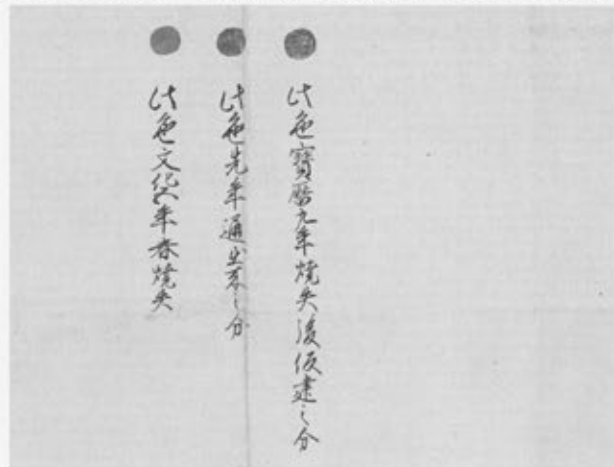 此色寳暦九年焼失後仮建之分
此色先年通出来之分
此色文化五年春焼失